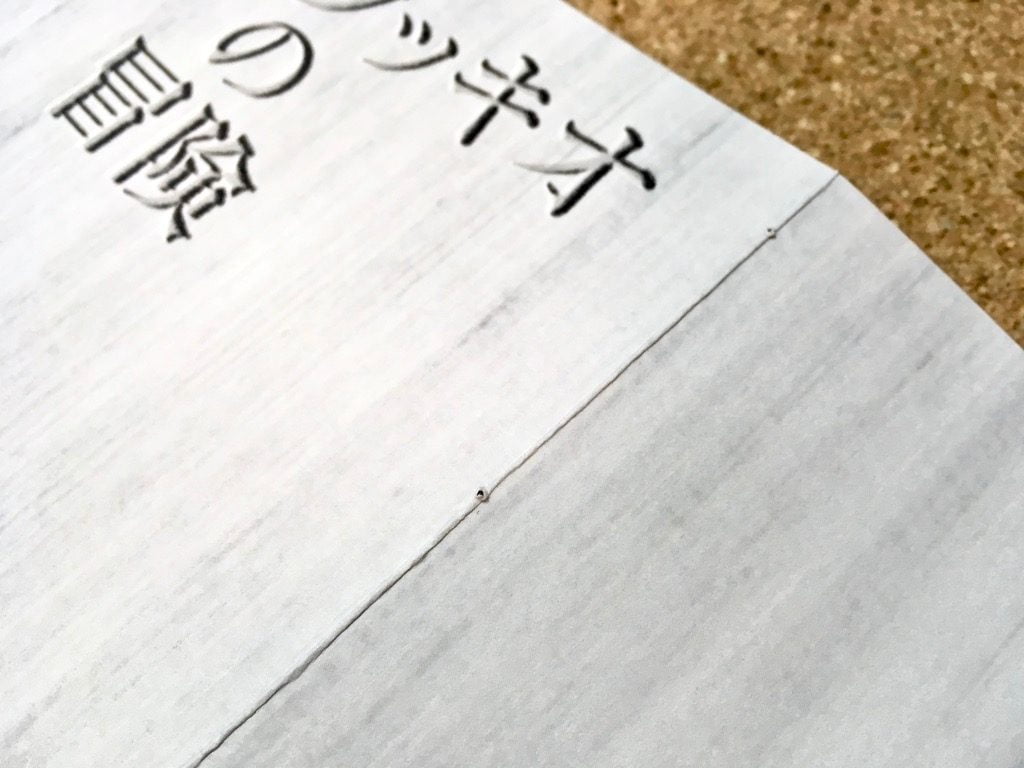 ッキオ
の
冒険